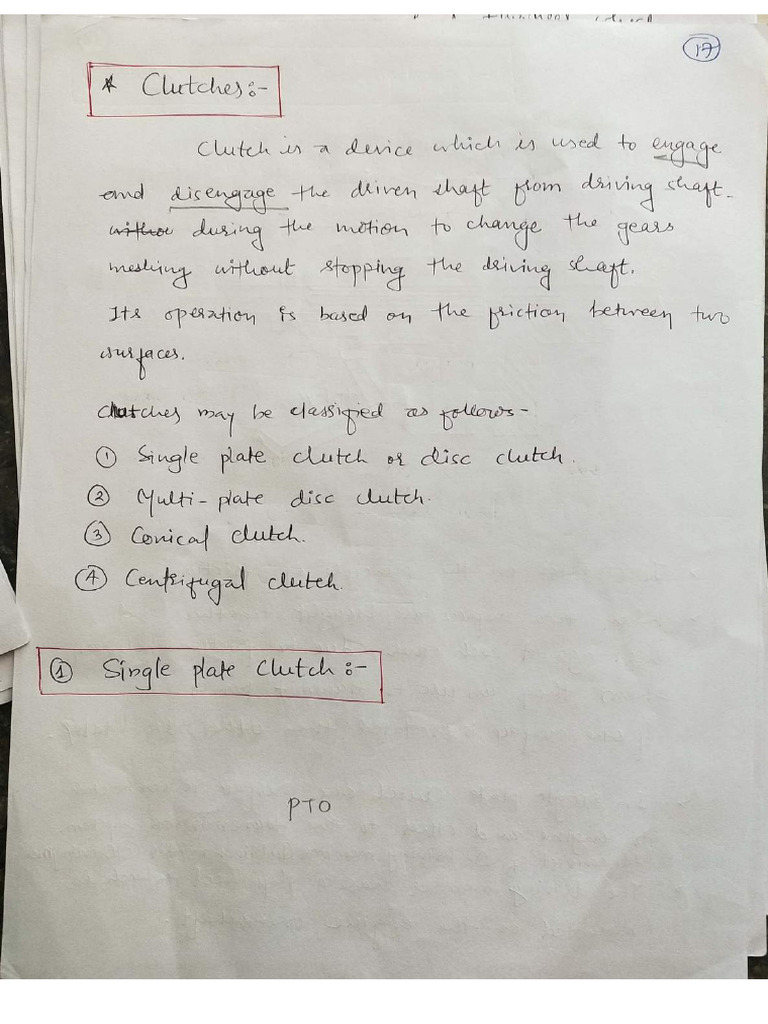 17
* Clutches:-
Clutch is a device which is used to engage
and disengage the driven shaft from driving shaft.
during the motion to change the gears
meshing without stopping the driving shaft.
Its operation is based on the friction between two
surfaces.
Clutches may be classified as follows-
① Single plate clutch or disc clutch.
② Multi-plate disc clutch.
③ Conical clutch.
④ Centrifugal clutch.
① Single plate Clutch:-
PTO